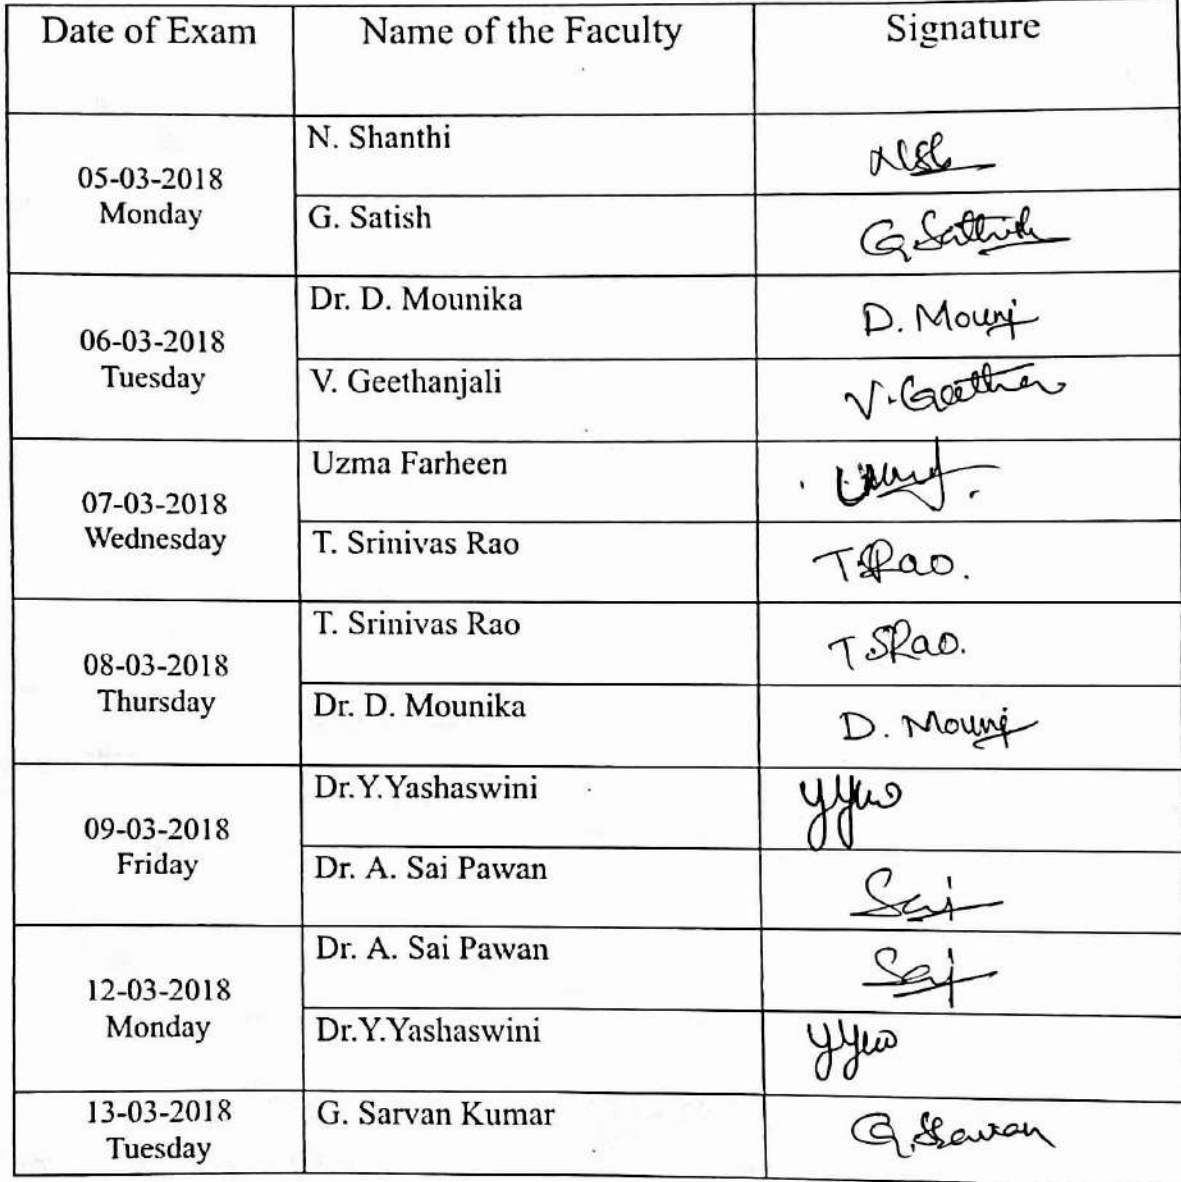 Date of Exam Name of the Faculty Signature
05-03-2018
Monday
N. Shanthi
G. Satish G. Sathish
06-03-2018
Tuesday
Dr. D. Mounika D. Mouni
V. Geethanjali V. Geetha
07-03-2018
Wednesday
Uzma Farheen
T. Srinivas Rao T.SRao.
08-03-2018
Thursday
T. Srinivas Rao T.SRao.
Dr. D. Mounika D. Mouni
09-03-2018
Friday
Dr.Y.Yashaswini
Dr. A. Sai Pawan Sai
12-03-2018
Monday
Dr. A. Sai Pawan Sai
Dr.Y.Yashaswini
13-03-2018
Tuesday
G. Sarvan Kumar